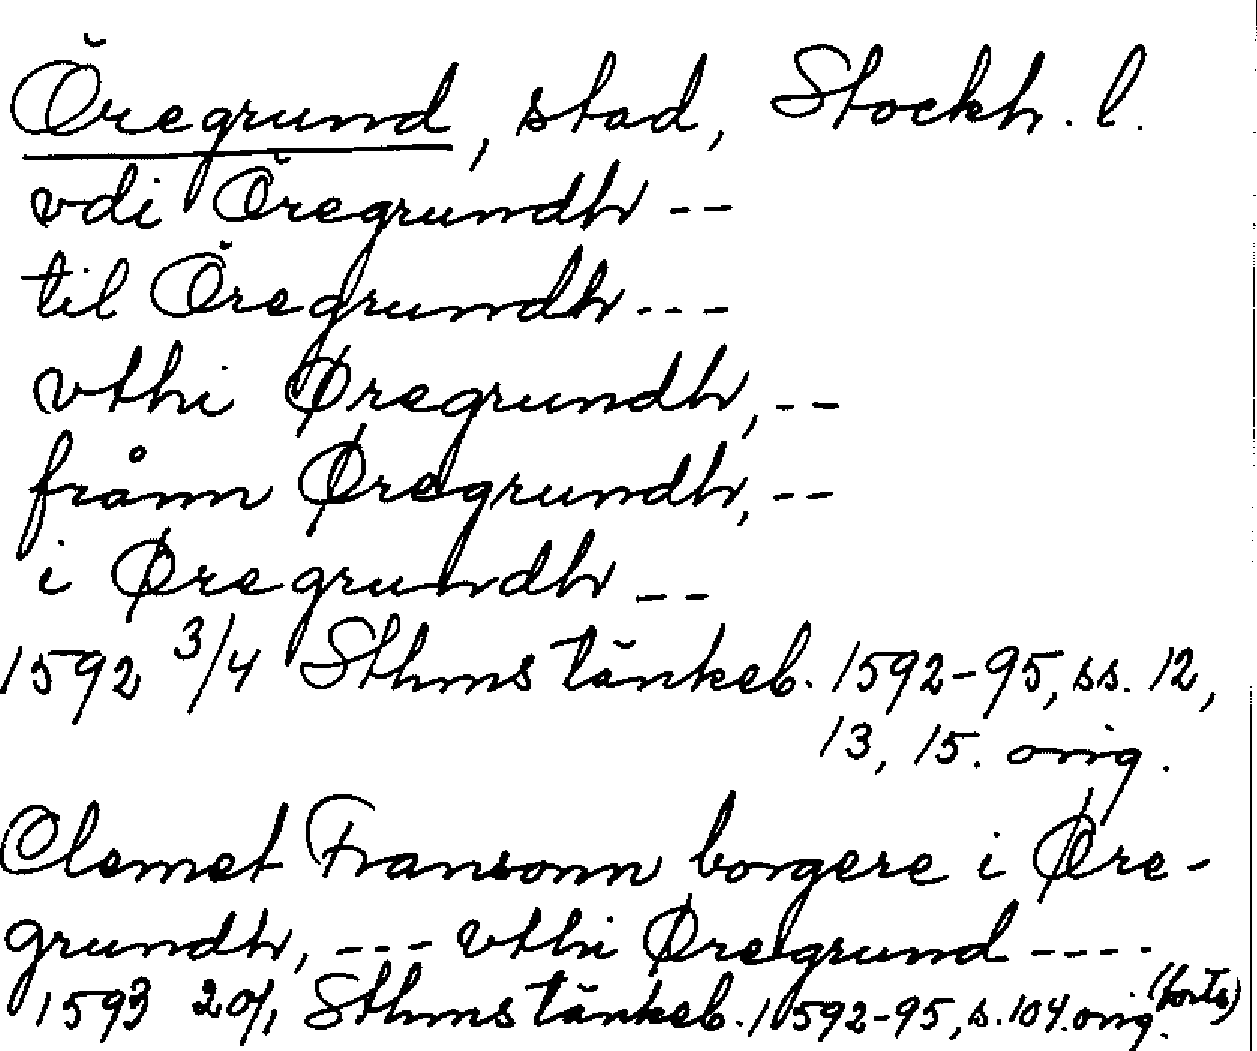 Öregrund, stad, Stockh. l.
vdi Öregrundh --
til Öregrundh ---
vthi Øregrundh, --
frånn Øregrundh, --
i Øregrundh --
1592 3/4 Sthms tänkeb. 1592-95, ss. 12,
13, 15. orig.
Clemet Fransonn borgere i Øre-
grundh, --- vthi Øregrund ----
1593 20/1 Sthms tänkeb. 1592-95, s. 104. orig. (forts)